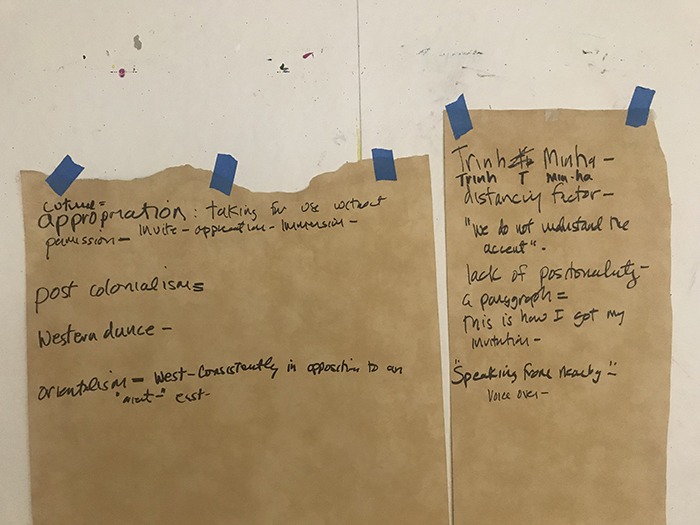 cultural=
appropriation: taking for use without
permission - invite - appreciation - immersion -
post colonialism=
Western dance -
orientalism - West - consistently in opposition to an
east -
Trinh Minha -
Trinh T Min-ha
distancing factor -
"we do not understand the
accent".
lack of positionality -
a paragraph =
This is how I got my
invitation -
"Speaking from nearby" -
Voice over -